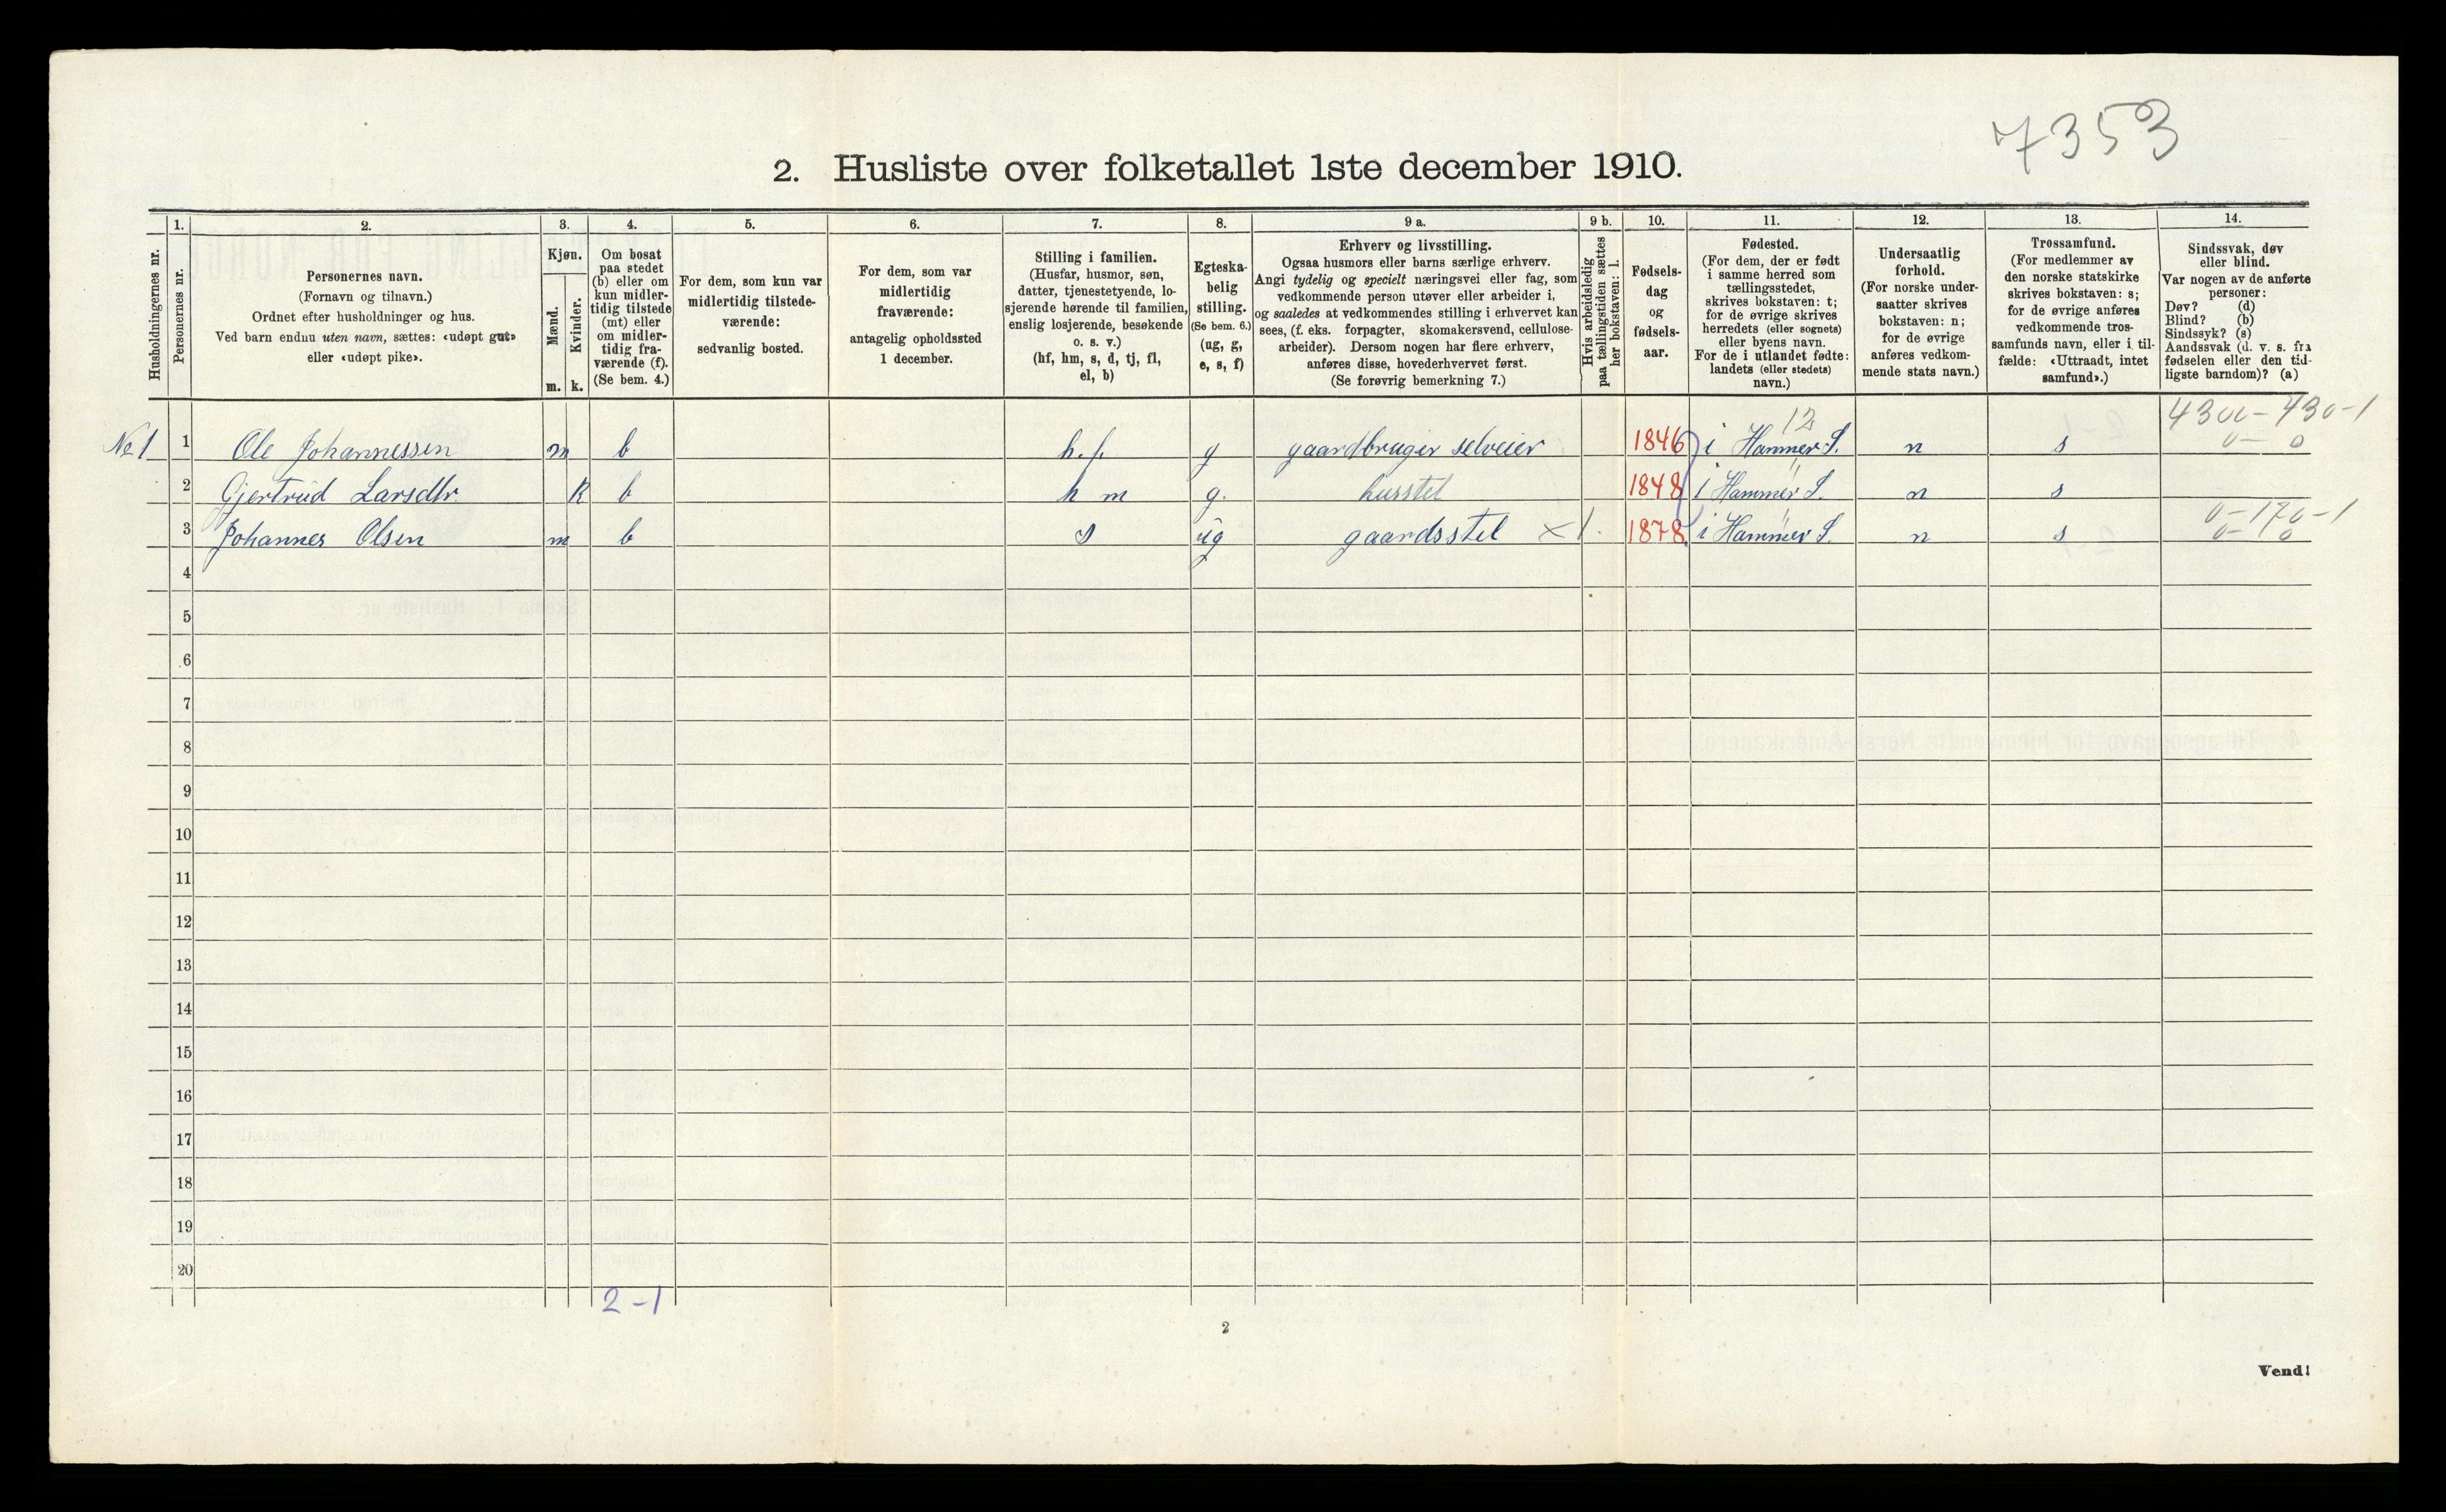 7353
2. Husliste over folketallet 1ste december 1910.
1. 2. 3. 4. 5. 6. 7. 8. 9 a. 9 b. 10. 11. 12. 13. 14.
Husholdningernes nr.
Personernes nr.
Personernes navn.
(Fornavn og tilnavn.)
Ordnet efter husholdninger og hus.
Ved barn endnu uten navn, sættes: «udøpt gut»
eller «udøpt pike».
Kjøn.
Mænd.
Kvinder.
m. k.
Om bosat
paa stedet
(b) eller om
kun midler-
tidig tilstede
(mt) eller
om midler-
tidig fra-
værende (f).
(Se bem. 4.)
For dem, som kun var
midlertidig tilstede-
værende:
sedvanlig bosted.
For dem, som var
midlertidig
fraværende:
antagelig opholdssted
1 december.
Stilling i familien.
(Husfar, husmor, søn,
datter, tjenestetyende, lo-
sjerende hørende til familien,
enslig losjerende, besøkende
o. s. v.)
(hf, hm, s, d, tj, fl,
el, b)
Egteska-
belig
stilling.
(Se bem. 6.)
(ug, g,
e, s, f)
Erhverv og livsstilling.
Ogsaa husmors eller barns særlige erhverv.
Angi tydelig og specielt næringsvei eller fag, som
vedkommende person utøver eller arbeider i,
og saaledes at vedkommendes stilling i erhvervet kan
sees, (f. eks. forpagter, skomakersvend, cellulose-
arbeider). Dersom nogen har flere erhverv,
anføres disse, hovederhvervet først.
(Se forøvrig bemerkning 7.)
Hvis arbeidsledig
paa tællingstiden sættes
her bokstaven: l.
Fødsels-
dag
og
fødsels-
aar.
Fødested.
(For dem, der er født
i samme herred som
tællingsstedet,
skrives bokstaven: t;
for de øvrige skrives
herredets (eller sognets)
eller byens navn.
For de i utlandet fødte:
landets (eller stedets)
navn.)
Undersaatlig
forhold.
(For norske under-
saatter skrives
bokstaven: n;
for de øvrige
anføres vedkom-
mende stats navn.)
Trossamfund.
(For medlemmer av
den norske statskirke
skrives bokstaven: s;
for de øvrige anføres
vedkommende tros-
samfunds navn, eller i til-
fælde: «Uttraadt, intet
samfund».)
Sindssvak, døv
eller blind.
Var nogen av de anførte
personer:
Døv? (d)
Blind? (b)
Sindssyk? (s)
Aandssvak (d. v. s. fra
fødselen eller den tid-
ligste barndom)? (a)
12
No 1 1 Ole Johannessen m b h.f. g gaardbruger selveier 1846 i Hammer S. n s
2 Gjertrud Larsdtr. k b h m g. husstel 1848 i Hammer S. n s
3 Johannes Olsen m b s ug gaardsstel 1878 i Hammer S. n s
4
5
6
7
8
9
10
11
12
13
14
15
16
17
18
19
20
2-1
2
Vend!